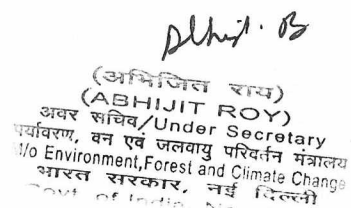 (अभिजित राय)
(ABHIJIT ROY)
अवर सचिव/Under Secretary
पर्यावरण, वन एवं जलवायु परिवर्तन मंत्रालय
M/o Environment,Forest and Climate Change
भारत सरकार, नई दिल्ली
Govt. of India,